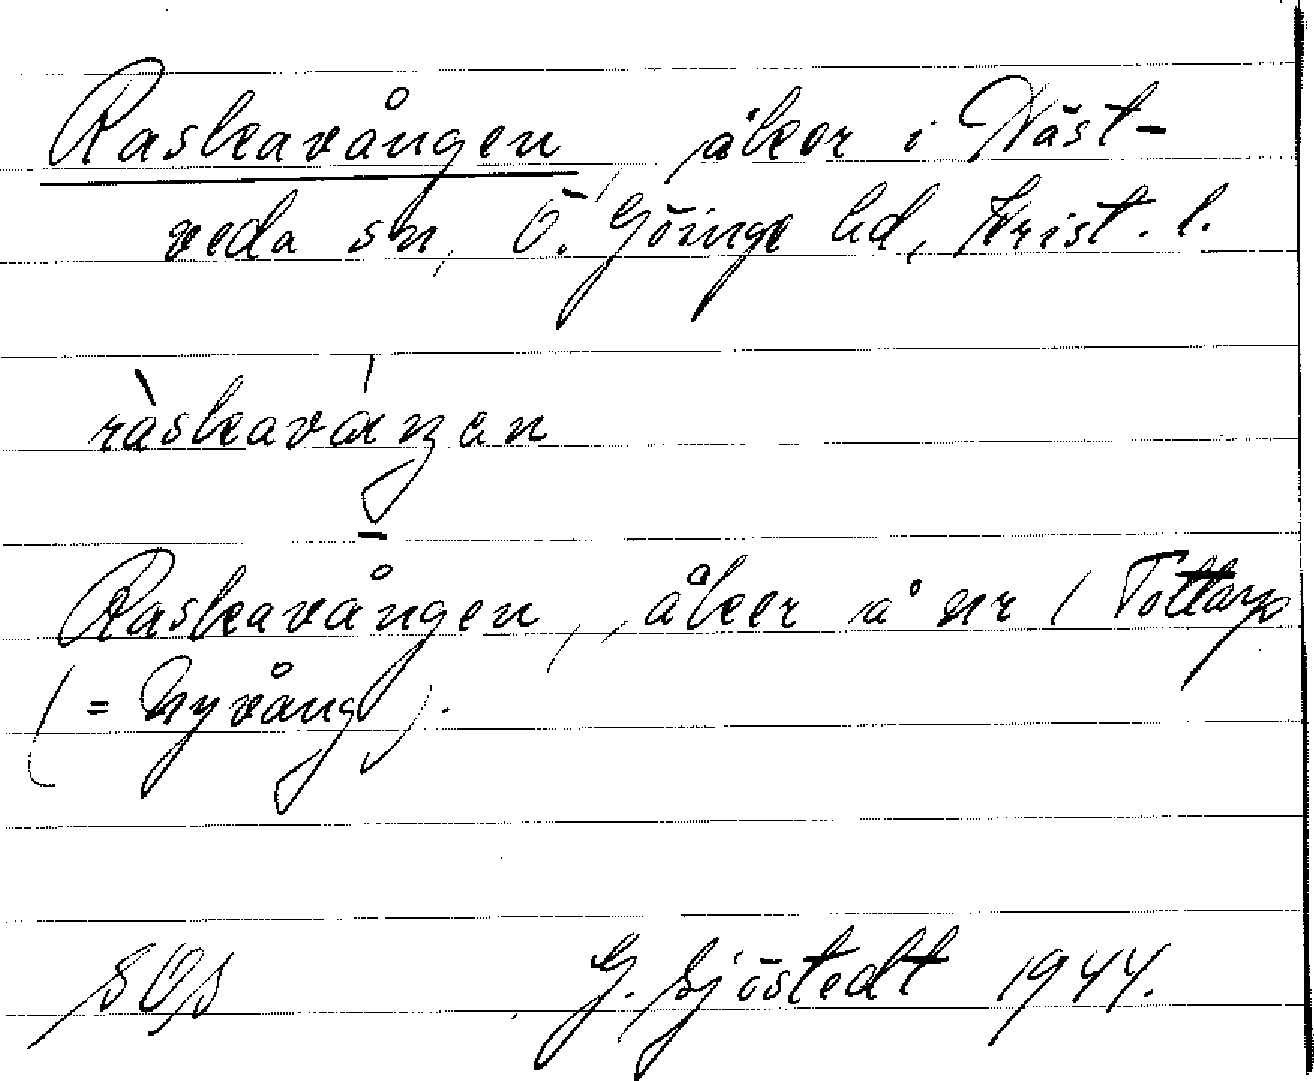 Raskavången, åker i Näst-
veda sn, Ö. Göinge hd, Krist. l.
ràskaváŋan
Raskavången, åker å nr 1 Tottarp
(= Nyvång).
SOS G. Sjöstedt 1944.